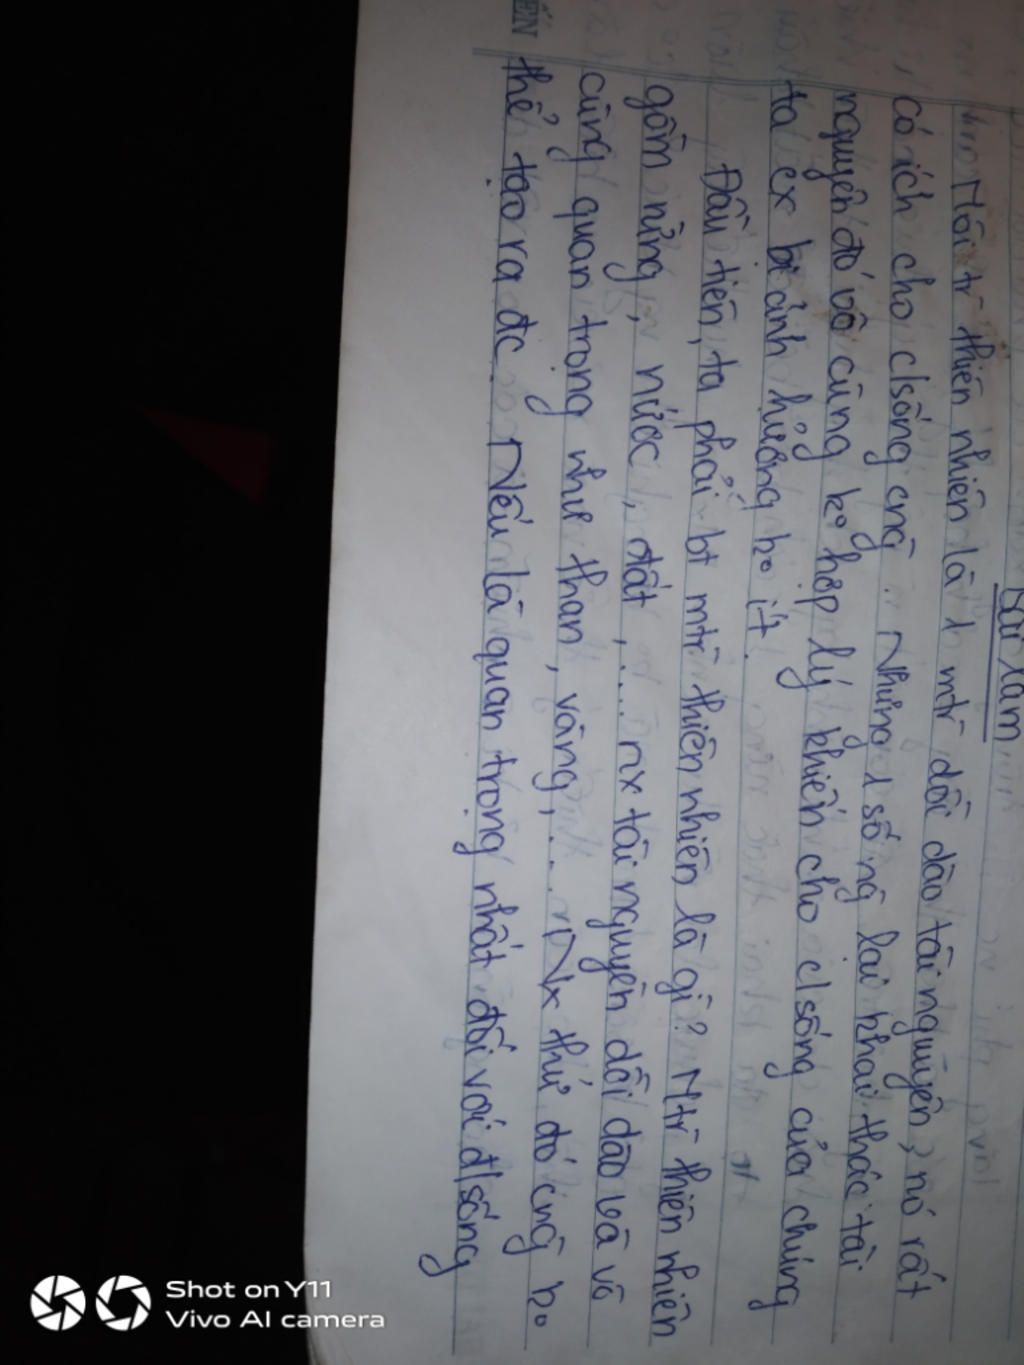 Bài làm
Môi tr̀ thiên nhiên là 1 mtr̀ dồi dào tài nguyên, nó rất
có ích cho c/sống cng̃. Nhưng 1 số ng̀ lại khai thác tài
nguyên đó vô cùng ko hợp lý khiến cho c/sống của chúng
ta cx bị ảnh hưởng ko ít.
Đầu tiên, ta phải bt mtr̀ thiên nhiên là gì? Mtr̀ thiên nhiên
gồm rừng, nước, đất,.... nx tài nguyên dồi dào và vô
cùng quan trọng như than, vàng,... Nx thứ đó cng̃ ko
thể tạo ra đc. Nếu là quan trọng nhất đối với đ/sống
ẾN
Shot on Y11
Vivo AI camera